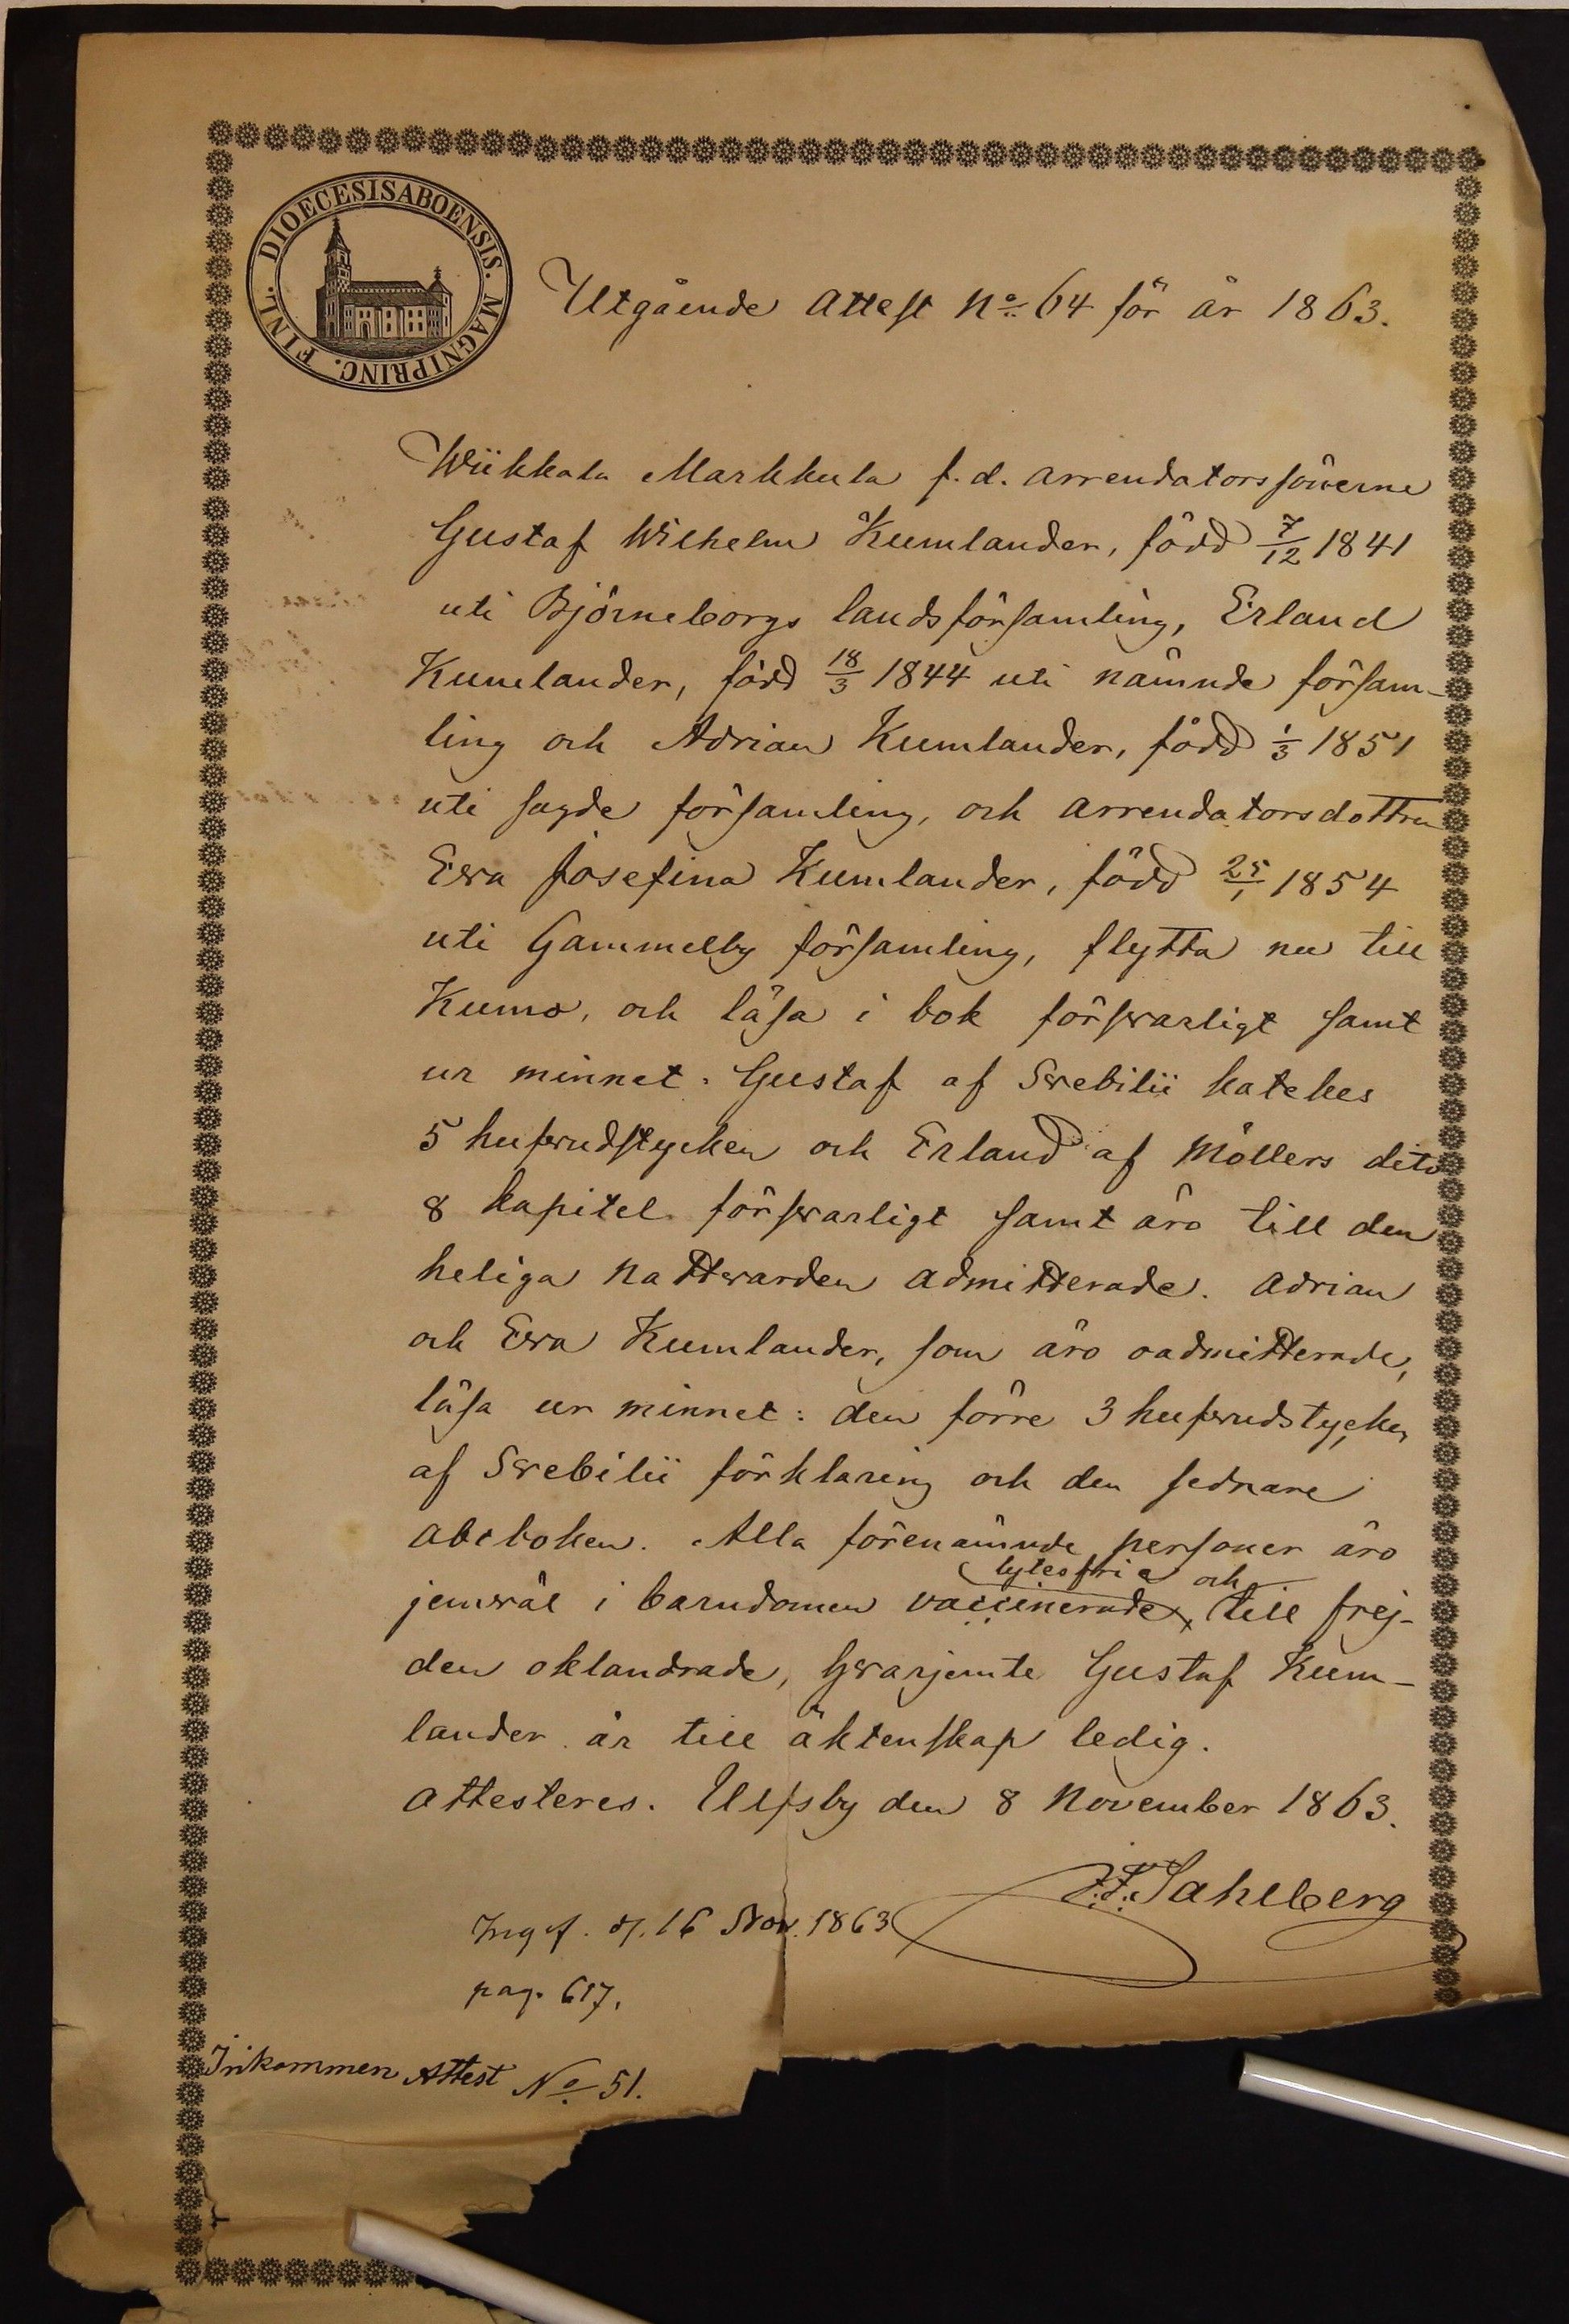 DIOECESIS ABOENSIS. MAGNI PRINC. FINL.
Utgående Attest No 64 för år 1863.
Wiikkala Markkula f.d. arrendatorssönerne
Gustaf Wilhelm Kumlander, född 7/12 1841
uti Björneborgs landsförsamling, Erland
Kumlander, född 18/3 1844 uti nämnde försam-
ling och Adrian Kumlander, född 1/3 1851
uti sagde församling, och arrendatorsdottren
Ewa Josefina Kumlander, född 25/1 1854
uti Gammelby församling, flytta nu till
Kumo, och läsa i bok förswarligt samt
ur minnet: Gustaf af Swebilii kateches
5 hufwudstycken och Erland af Möllers dito
8 kapitel förswarligt samt äro till den
heliga nattwarden admitterade. Adrian
och Ewa Kumlander, som äro oadmitterade,
läsa ur minnet: den förre 3 hufwudstycken
af Swebilii förklaring och den sednare
abcboken. Alla förenämnde personer äro
lytesfria och
jemwäl i barndomen vaccinerade, till frej-
den oklandrade, hwarjemte Gustaf Kum-
lander är till äktenskap ledig.
Attesteres. Ulfsby den 8 November 1863.
F.F. Sahlberg
Ingf. d. 16 Nov. 1863
pag. 617.
Inkommen Attest No 51.